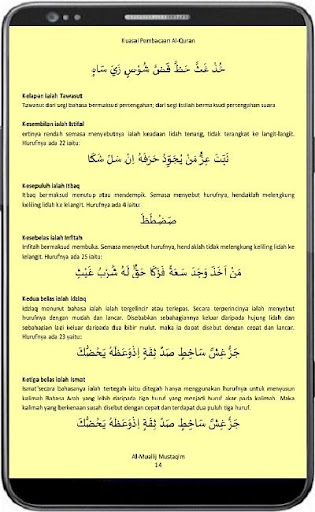 Kuasai Pembacaan Al-Quran
خُذْ غَثَّ حَظَّ فَضَّ شُوْسٍ زَيَ سَاهٍ
Kelapan ialah Tawasut
Tawasut dari segi bahasa bermaksud pertengahan; dari segi istilah bermaksud pertengahan suara
Kesembilan ialah Istifal
ertinya rendah semasa menyebutnya ialah keadaan lidah tenang, tidak terangkat ke langit-langit.
Hurufnya ada 22 iaitu:
ثَبَتَ عِزُّ مَنْ يُجَوِّدُ حَرْفَهُ إِنْ سَلَ شَكَا
Kesepuluh ialah Itbaq
Itbaq bermaksud menutup atau mendempik. Semasa menyebut hurufnya, hendaklah melengkung
keliling lidah ke lelangit. Hurufnya ada 4 iaitu:
صَضَطَظَ
Kesebelas ialah Infitah
Infitah bermaksud membuka. Semasa menyebut hurufnya, hendaklah tidak melengkung keliling lidah ke
lelangit. Hurufnya ada 25 iaitu:
مَنْ اَخَذَ وَجَدَ سَعَةً فَزَكَا حَقٌّ لَهُ شُرْبُ غَيْثٍ
Kedua belas ialah Idzlaq
Idzlaq menurut bahasa ialah ialah tergelincir atau terlepas. Secara terperincinya ialah menyebut
hurufnya dengan mudah dan lancar. Disebabkan sebahagiannya keluar daripada hujung lidah dan
sebahagian lagi keluar daripada dua bibir mulut, maka ia dapat disebut dengan cepat dan lancar.
Hurufnya ada 23 yaitu:
جَزُّ غِشٍّ سَاخِطٍ صَدَّ ثِقَةٍ اِذْوَعَظَهُ يَحُضُّكَ
Ketiga belas ialah Ismat
Ismat'secara bahasanya ialah tertegah iaitu ditegah hanya menggunakan hurufnya untuk menyusun
kalimah Bahasa Arab yang lebih daripada tiga huruf yang menjadi huruf akar pada kalimah. Maka
kalimah yang berkenaan susah disebut dengan cepat dan terdapat dua puluh tiga huruf.
جَزُّ غِشٍّ سَاخِطٍ صَدَّ ثِقَةٍ اِذْوَعَظَهُ يَحُضُّكَ
Al-Muallij Mustaqim
14